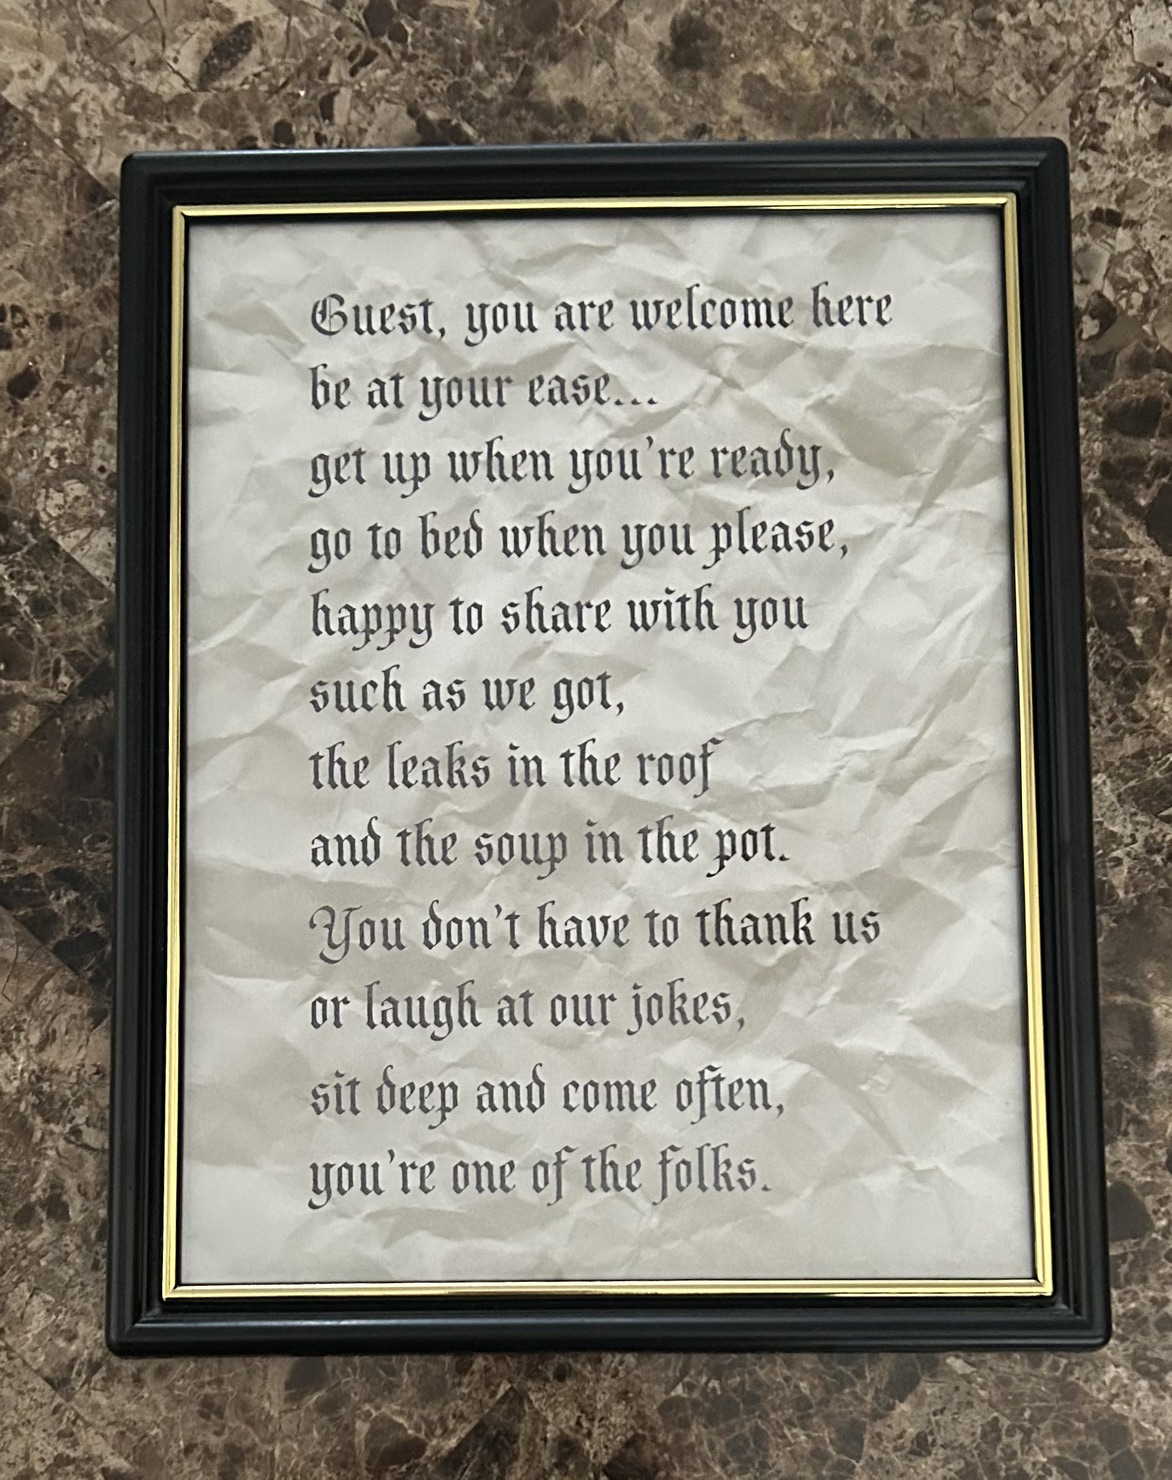 Guest, you are welcome here
be at your ease...
get up when you're ready,
go to bed when you please,
happy to share with you
such as we got,
the leaks in the roof
and the soup in the pot.
You don't have to thank us
or laugh at our jokes,
sit deep and come often,
you're one of the folks.